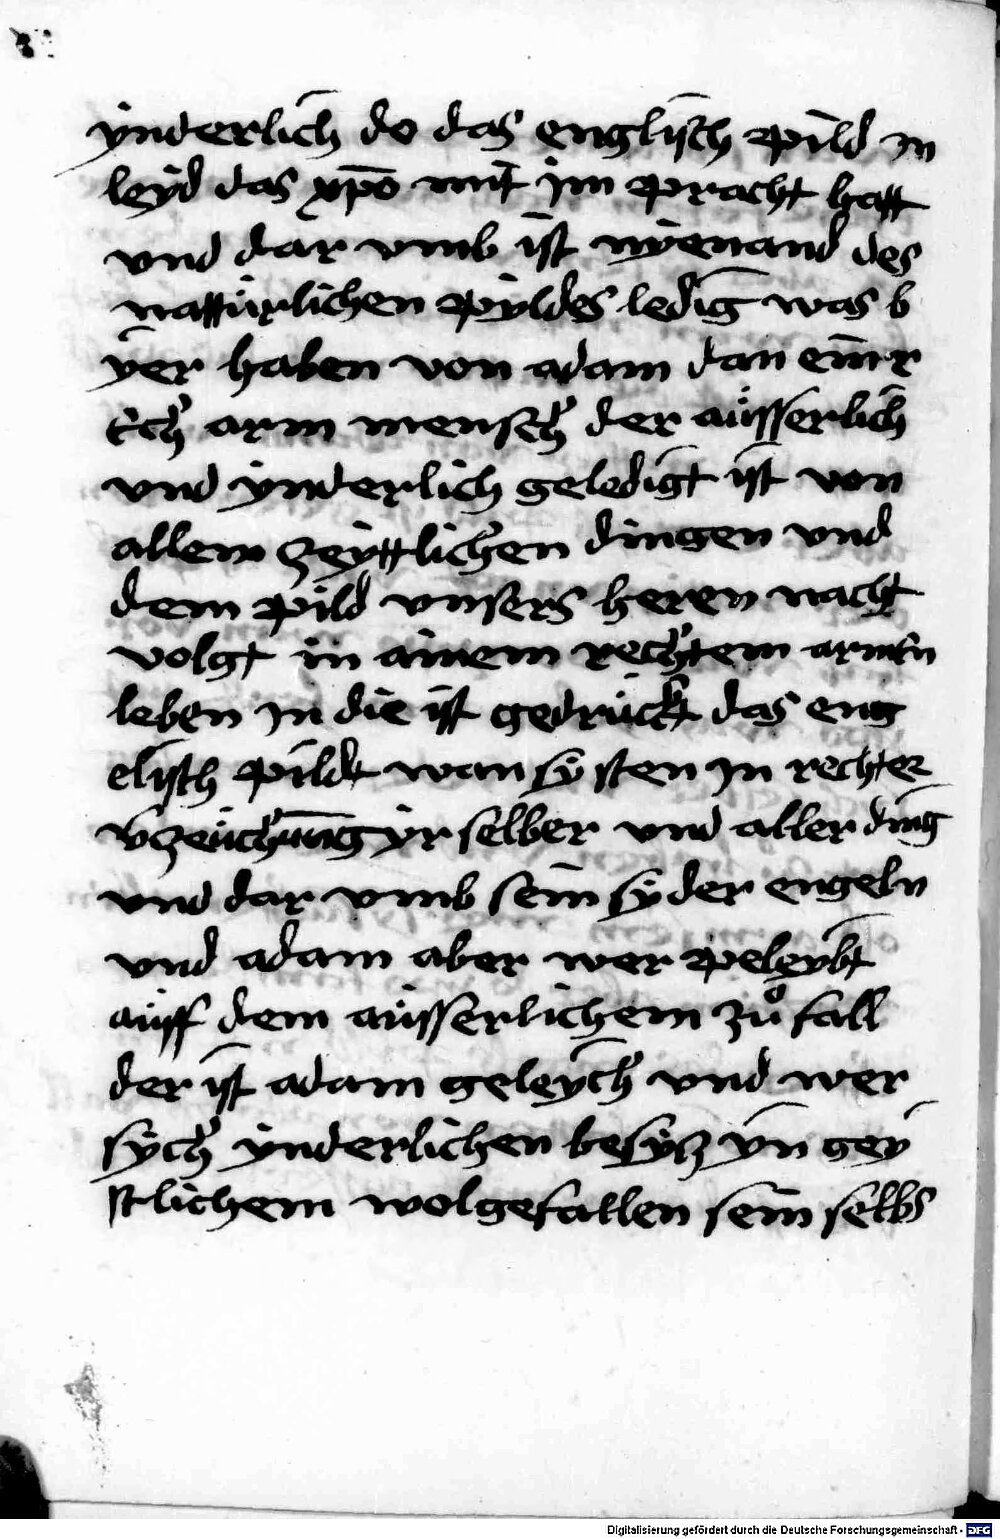 ynderlich do das englisch pild in
leyd das xpo mit im pracht hatt
vnd dar vmb ist nyemand des
nattürlichen pyldes ledig was b
yer haben von adam dan einr
ich arm mensch der aüsserlich
vnd ynderlich geledigt ist von
allem zeyttlichen dingen vnd
dem pild vnsers heren nacht
volgt in ainem rechtem armen
leben in die ist gedrückt das eng
elisch pildt wan sy sten in rechter
vzeüchung yr selber vnd aller ding
vnd dar vmb sein sy der engeln
vnd adam aber wer peleybt
aüff dem aüsserlichem zůfall
der ist adam geleych vnd wer
sych ynderlichen besytz yn gey
stlichem wolgefallen sein selbs
Digitalisierung gefördert durch die Deutsche Forschungsgemeinschaft - DFG